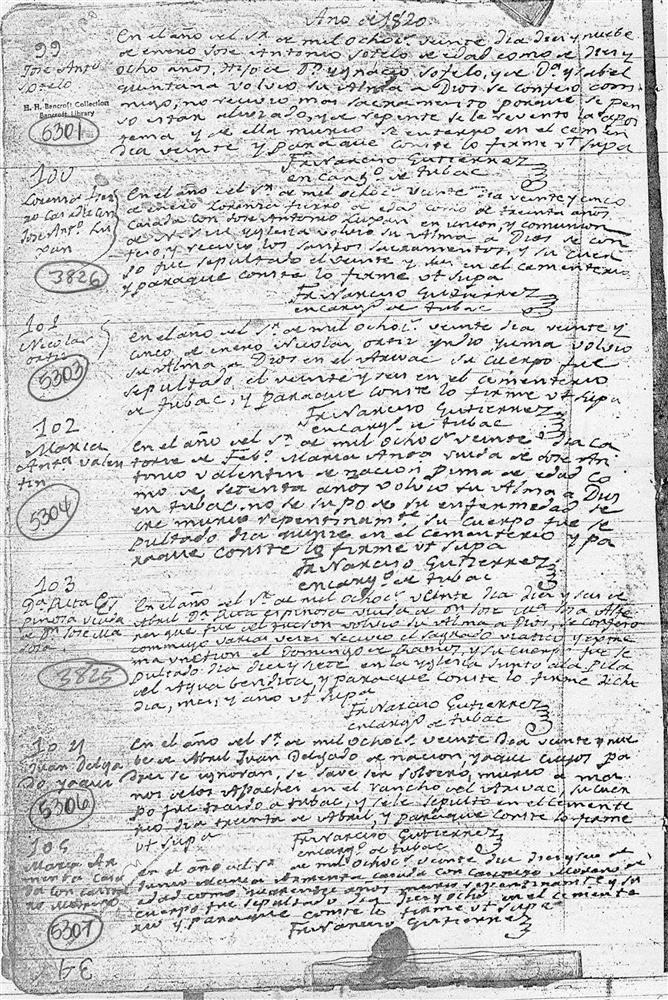 Ano de 1820
99
Jose Anto
Sotelo
H. H. Bancroft Collection
Bancroft Library
5301
En el año del Sr. de mil ochoc. veinte dia diez y nuebe
de enero Jose Antonio Sotelo de edad como de diez y
ocho años, Hijo de Dn. Ygnacio Sotelo, y de Da. Ysabel
quintana volvio su Alma a Dios se confeso com
migo, no recivio mas sacramento porque se pen
so estar aliviado, y de repente se le revento la apos
tema y de ella murio se enterro en el cemen
dia veinte y para que conste lo firme ut supa
Fr. Narciso Gutierrez
encargo. de tubac
100
Lorenza fier
ro casada con
Jose Anto. Lu
xan
3826
En el año del Sr. de mil ochoc. veinte dia veinte y cinco
de enero Lorenza fierro de edad como de treinta años
casada con Jose Antonio Luxan en union, y comunion
de N. S. M. Yglesia volvio su Alma a Dios se con
feso, y recivio los santos sacramentos, y su cuer
po fue sepultado el veinte y seis en el cementerio
y para que conste lo firme ut supa
Fr. Narciso Gutierrez
encargo. de tubac
101
Nicolas
ortiz
5303
En el año del Sr. de mil ochoc. veinte dia veinte y
cinco de enero Nicolas ortiz yndio yuma volvio
su Alma a Dios en el Arivac su cuerpo fue
sepultado el veinte y seis en el cementerio
de tubac, y para que conste lo firme ut supa
Fr. Narciso Gutierrez
encargo. de tubac
102
Maria
Anta Valen
tin
5304
En el año del Sr. de mil ochoc. veinte dia ca
torce de Febo. Maria Anta viuda de Jose An
tonio Valentin de nacion Pima de edad co
mo de setenta años volvio su Alma a Dios
en tubac, no se supo de su enfermedad
murio repentinamte su cuerpo fue se
pultado dia quinze en el cementerio y pa
raque conste lo firme ut supa
Fr. Narciso Gutierrez
encargo. de tubac
103
Da. Rita Es
pinosa Viuda
de Dn. Jose Ma
Sosa
3825
En el año del Sr. de mil ochoc. veinte dia diez y seis de
Abril Da. Rita Espinosa viuda de Dn Jose Ma Sosa Alfe
res que fue del tucson volvio su Alma a Dios, se confeso
commigo varias veces recivio el sagrado viatico y extre
ma unction el Domingo de Ramos, y su cuerpo fue se
pultado dia diez y siete en la yglesia junto a la Pila
del Agua bendita y para que conste lo firme dicho
dia, mes, y año ut supa
Fr. Narciso Gutierrez
encargo. de tubac
104
Juan Delga
do yaqui
5306
En el año del Sr. de mil ochoc. veinte dia veinte y nue
be de Abril Juan Delgado de nacion, yaque cuyos pa
dres se ignoran, se save ser soltero, murio a ma
nos de los Apaches en el rancho del Arivac, su cuer
po fue traido a tubac, y se le sepulto en el cemente
rio dia treinta de Abril, y para que conste lo firme
ut supa
Fr. Narciso Gutierrez
encargo. de tubac
105
Maria Ar
menta casa
da con
Moreno
5307
En el año del Sr. de mil ochoc. veinte dia diez y seis de
Junio Maria Armenta casada con Moreno de
edad como quarenta años murio repentinamte y su
cuerpo fue sepultado dia diez y ocho en el cemente
rio y para que conste lo firme ut supa
Fr. Narciso Gutierrez
34